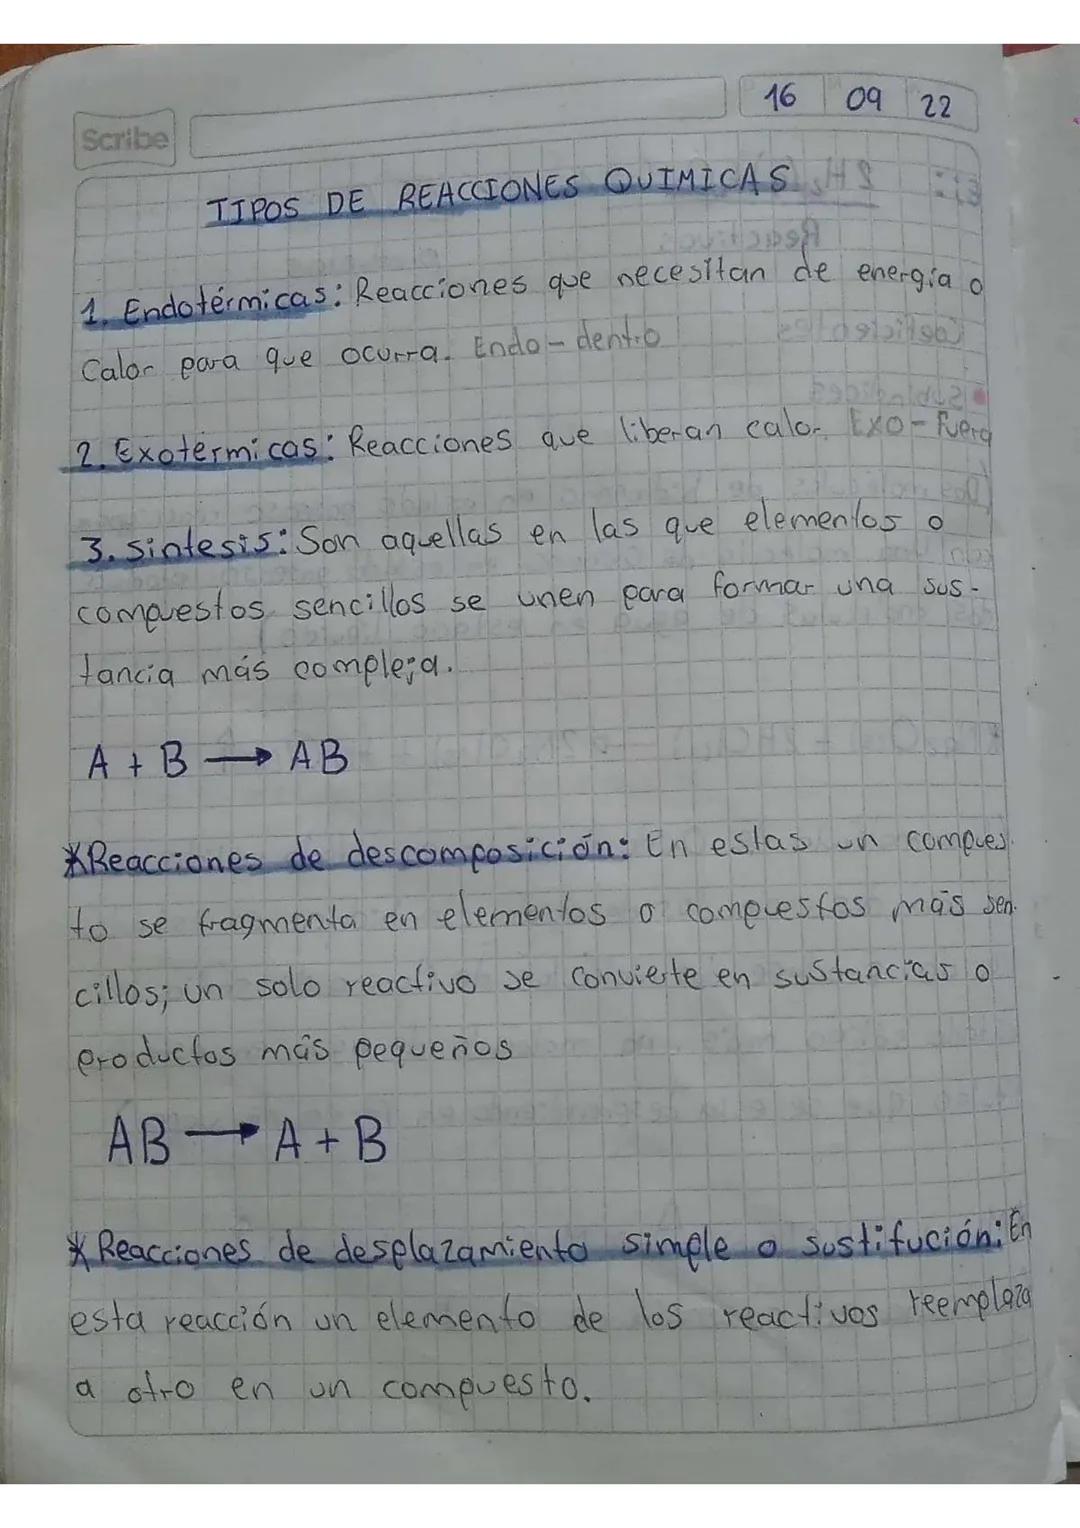 Scribe
16 09 22
TIPOS DE REACCIONES QUIMICAS
1. Endotérmicas: Reacciones que necesitan de energía o
Calor para que ocurra. Endo-dentro
2. Exotérmicas: Reacciones que liberan calor. Exo-Fuera
3. Sintesis: Son aquellas en las que elementos o
compuestos sencillos se unen para formar una sus-
tancia más compleja.
A + B → AB
*Reacciones de descomposición: En estas un compues
to se fragmenta en elementos o compuestos más sen-
cillos; un solo reactivo se convierte en sustancias o
productos más pequeños
AB → A + B
* Reacciones de desplazamiento simple o sustitución: En
esta reacción un elemento de los reactivos reemplaza
a otro en un compuesto.